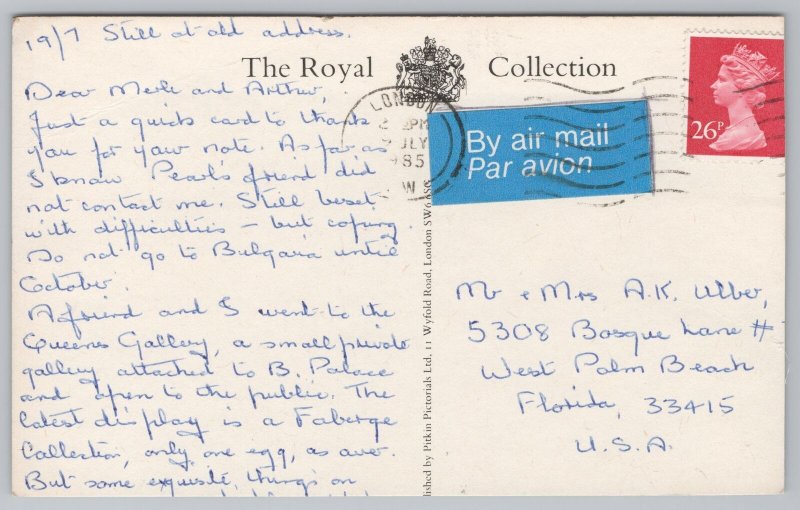 19/7 Still at old address.
The Royal Collection
Dear Merle and Arthur,
Just a quick card to thank
you for your note. As far as
I know Pearl's friend did
not contact me. Still beset
with difficulties – but coping.
Do not go to Bulgaria until
October.
A friend and I went to the
Queens Gallery, a small private
gallery attached to B. Palace
and open to the public. The
latest display is a Faberge
Collection, only one egg, as ever.
But some exquisite, things on
LONDON
PM
JULY
1985
By air mail
Par avion
26P
lished by Pitkin Pictorials Ltd, 11 Wyfold Road, London SW6 6SG
Mr & Mrs A.K. Ulber,
5308 Bosque Lane #
West Palm Beach
Florida, 33415
U.S.A.